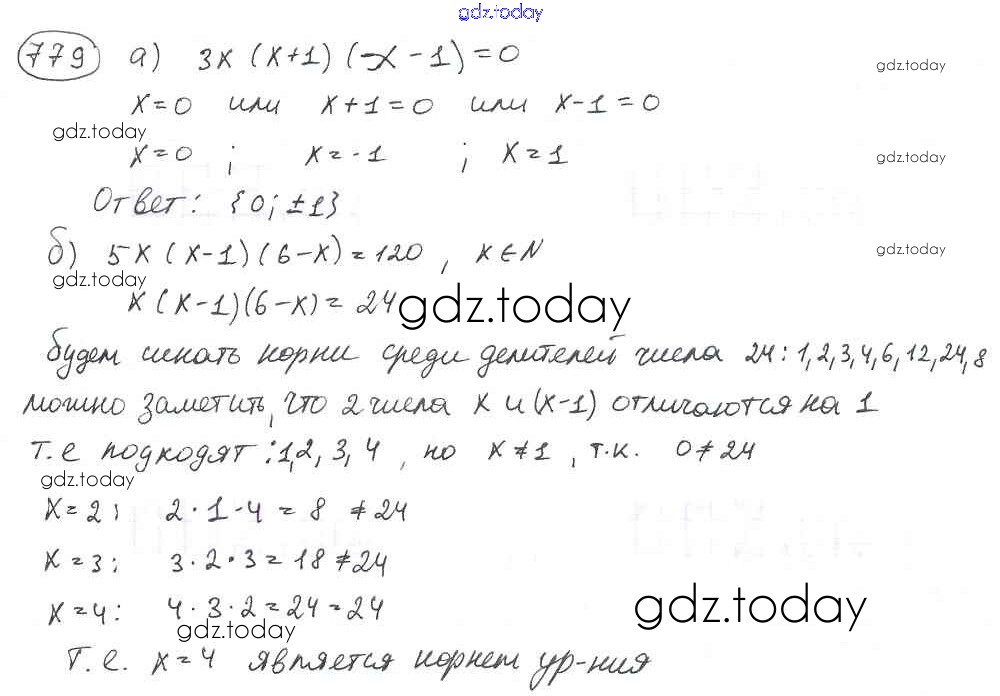 gdz.today
779 а) 3x (x+1) (x-1)=0
gdz.today
x=0 или x+1=0 или x-1=0
gdz.today
x=0 ; x=-1 ; x=1
gdz.today
Ответ: {0; ±1}
б) 5x (x-1) (6-x)=120 , x∈N
gdz.today
gdz.today
x (x-1)(6-x)= 24
gdz.today
будем искать корни среди делителей числа 24: 1,2,3,4,6,12,24,8
можно заметить, что 2 числа x и (x-1) отличаются на 1
т.е подходят : 1,2, 3, 4 , но x≠1 , т.к. 0≠24
gdz.today
x=2: 2·1·4=8 ≠24
x=3: 3·2·3=18≠24
x=4: 4·3·2=24=24
gdz.today
gdz.today
Т.е. x=4 является корнем ур-ния